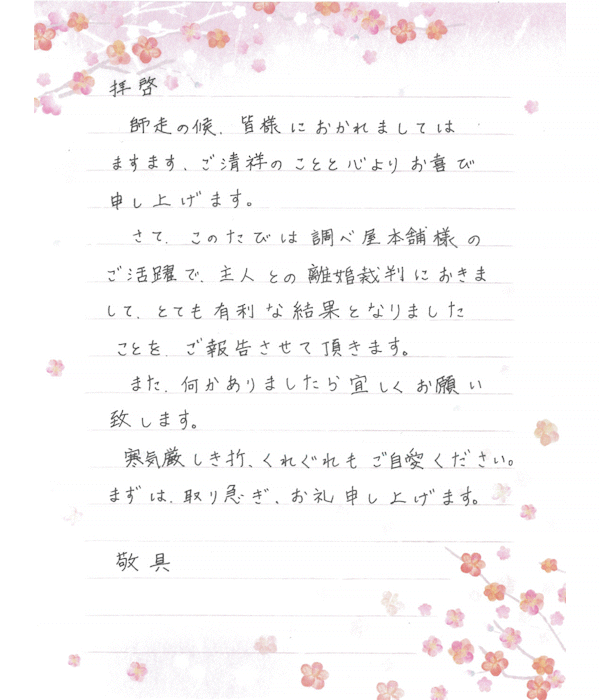 拝啓
師走の候、皆様におかれましては
ますます、ご清祥のことと心よりお喜び
申し上げます。
さて、このたびは調べ屋本舗様の
ご活躍で、主人との離婚裁判におきま
して、とても有利な結果となりました
ことを、ご報告させて頂きます。
また、何かありましたら宜しくお願い
致します。
寒気厳しき折、くれぐれもご自愛ください。
まずは、取り急ぎ、お礼申し上げます。
敬具